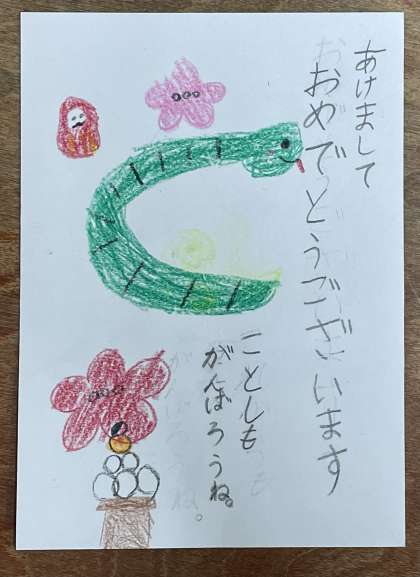 あけまして
おめでとうございます
ことしも
がんばろうね。